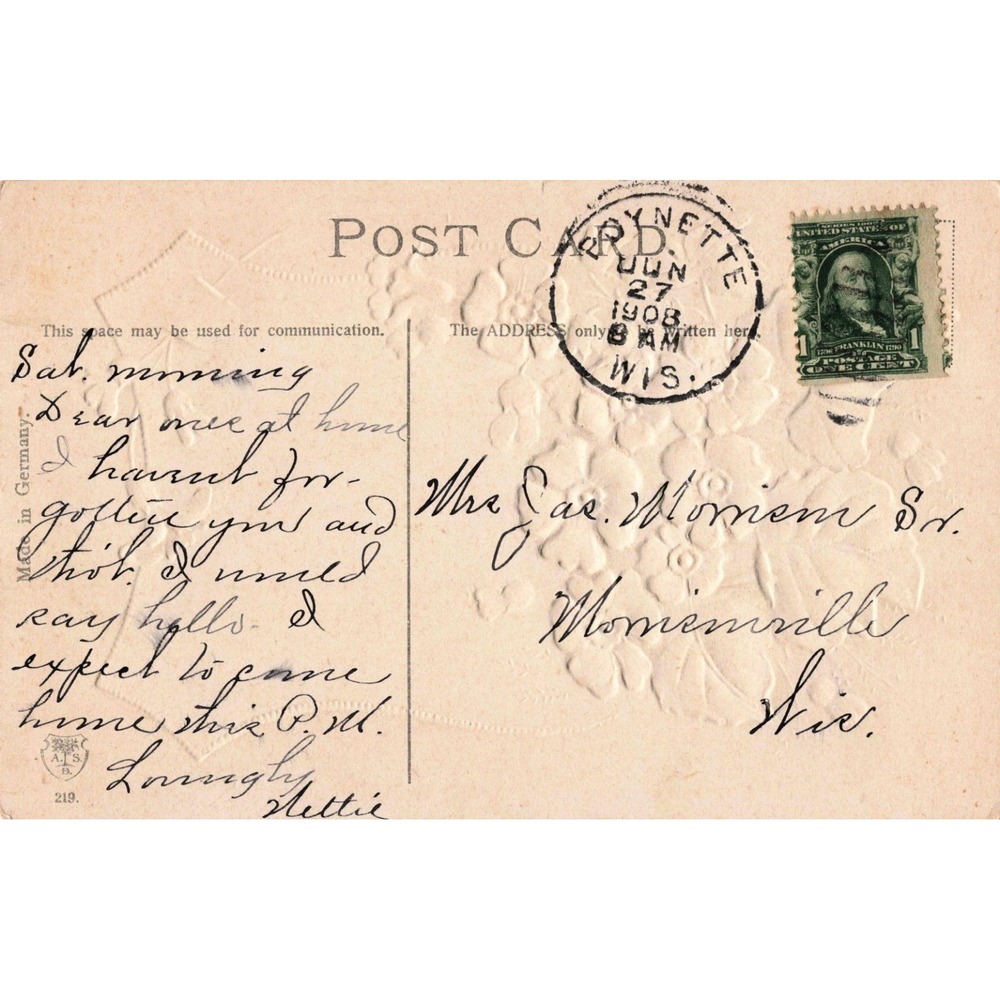 POST CARD.
POYNETTE
JUN
27
1908
8 AM
WIS.
UNITED STATES OF
AMERICA
1 FRANKLIN 1
POSTAGE
ONE CENT
This space may be used for communication.
The ADDRESS only to be written here.
Sat. morning
Dear ones at home
I havent for-
gotten you and
tho't I would
say hello. I
expect to come
home this P.M.
Lovingly
Nettie
Mrs Jas. Morrison Sr.
Morrisonville
Wis.
Made in Germany.
A. S.
B.
219.